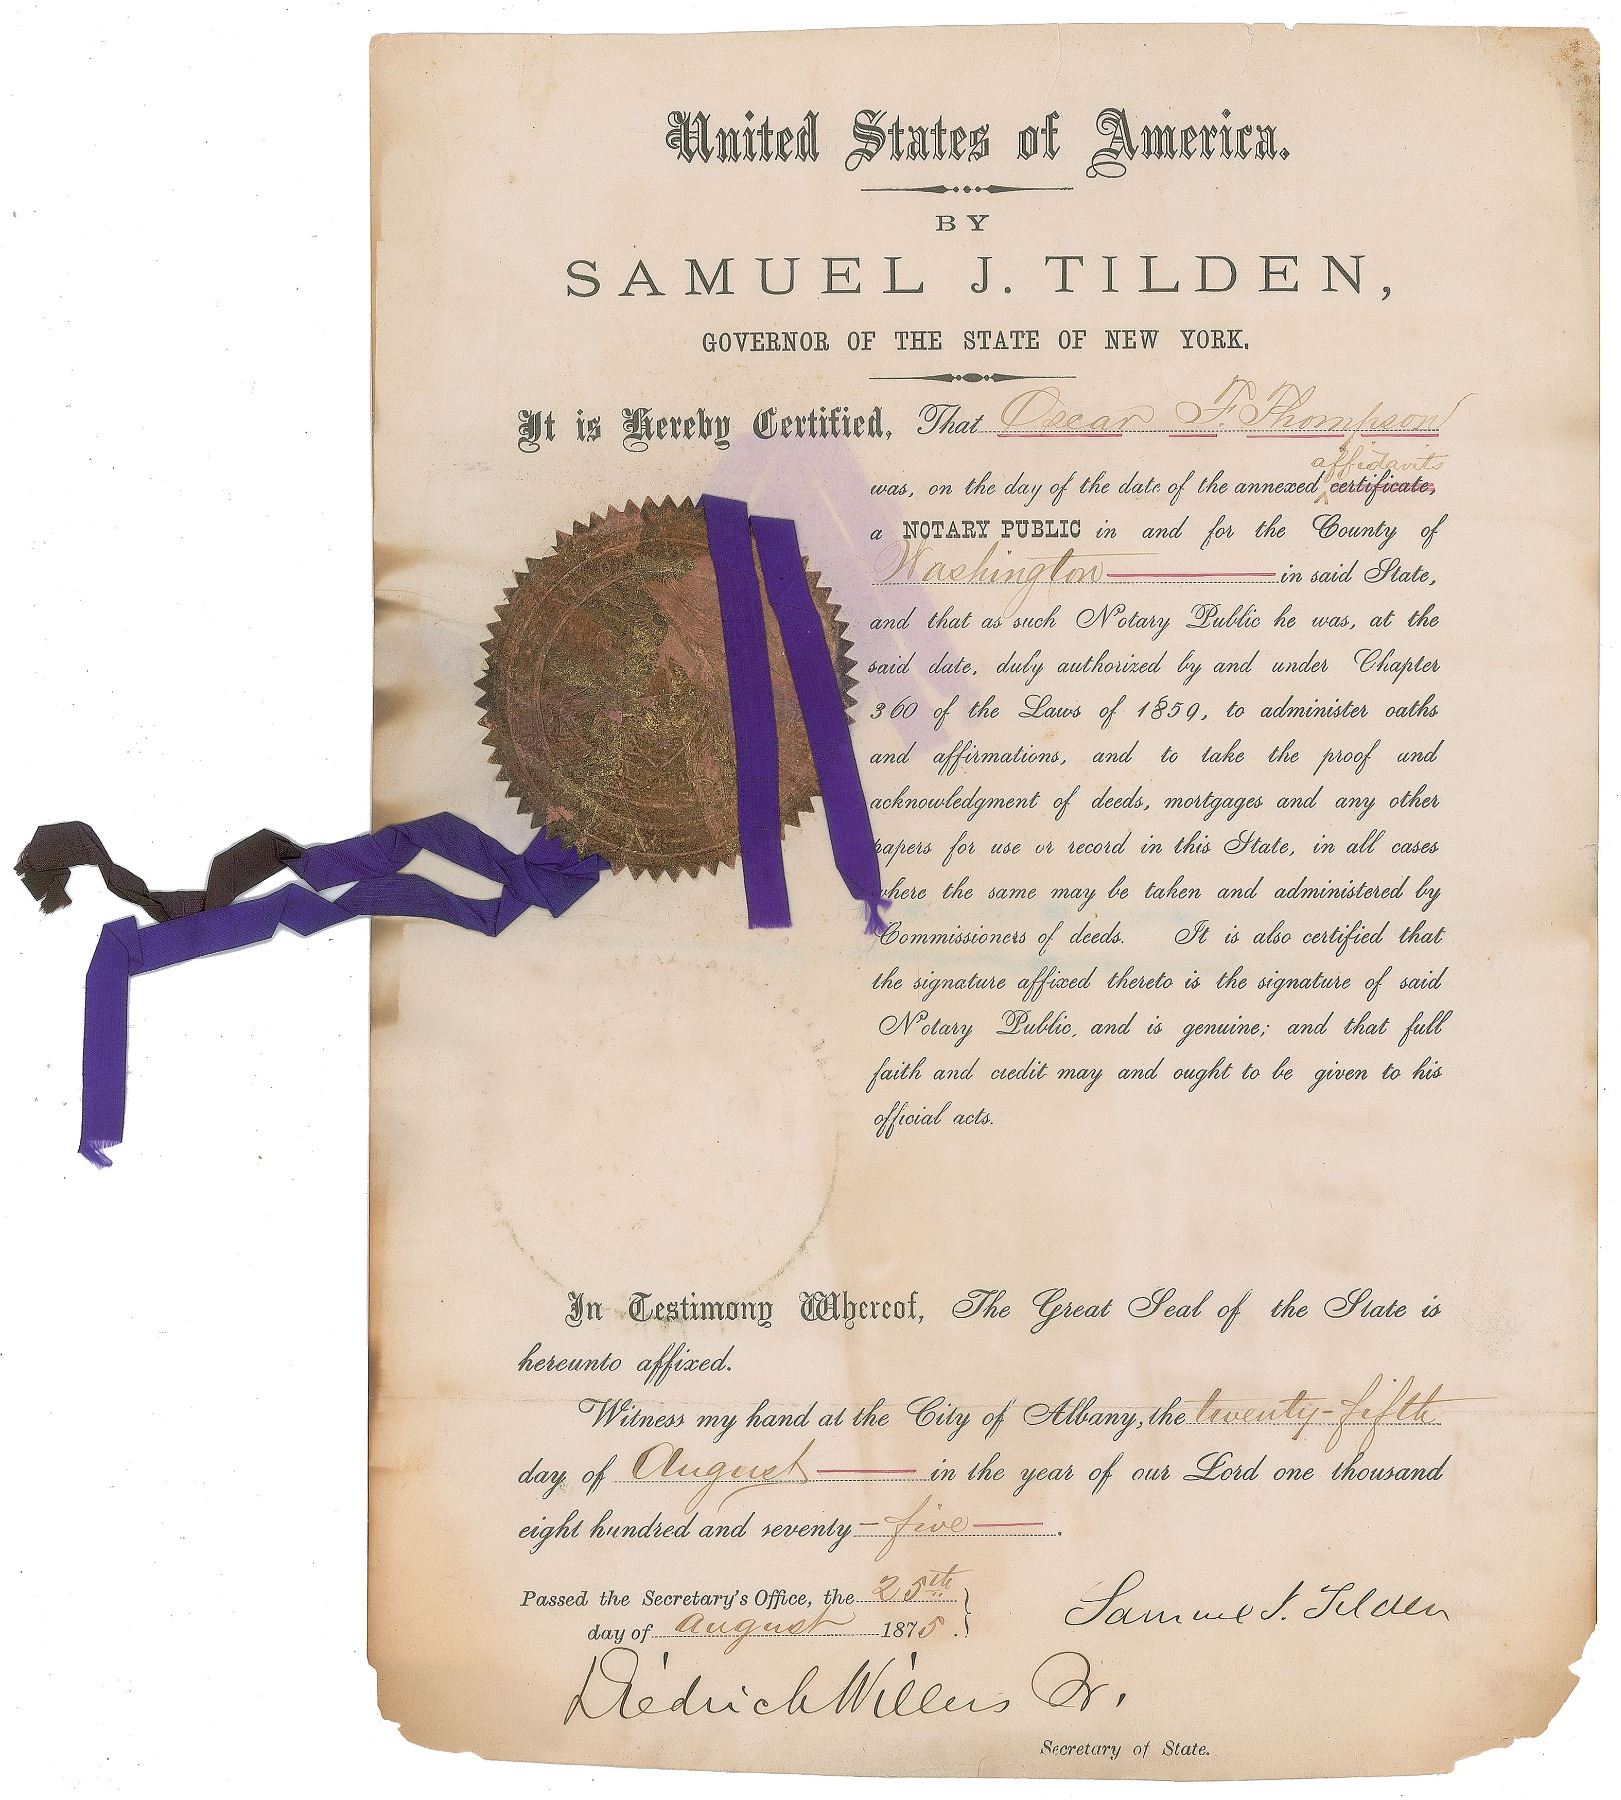 United States of America.
BY
SAMUEL J. TILDEN,
GOVERNOR OF THE STATE OF NEW YORK.
It is Hereby Certified, That Oscar F. Thompson
affidavits
was, on the day of the date of the annexed certificate,
a NOTARY PUBLIC in and for the County of
Washington in said State,
and that as such Notary Public he was, at the
said date, duly authorized by and under Chapter
360 of the Laws of 1859, to administer oaths
and affirmations, and to take the proof and
acknowledgment of deeds, mortgages and any other
papers for use or record in this State, in all cases
where the same may be taken and administered by
Commissioners of deeds. It is also certified that
the signature affixed thereto is the signature of said
Notary Public, and is genuine; and that full
faith and credit may and ought to be given to his
official acts.
In Testimony Whereof, The Great Seal of the State is
hereunto affixed.
Witness my hand at the City of Albany, the twenty-fifth
day of August in the year of our Lord one thousand
eight hundred and seventy-five.
Passed the Secretary's Office, the 25th
day of August 1875.
Samuel J. Tilden
Diedrich Willers Jr.
Secretary of State.